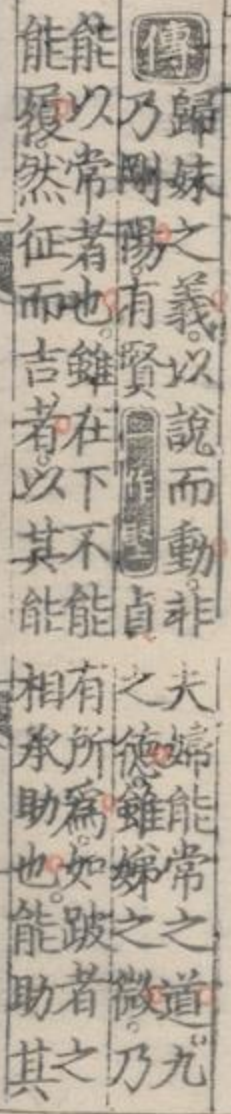 傳
歸妹之義。以說而動。非夫婦能常之道。九
乃剛陽。有賢貞之德。雖娣之微。乃
能以常者也。雖在下不能有所爲。如跛者之
能履。然征而吉者。以其能相承助也。能助其